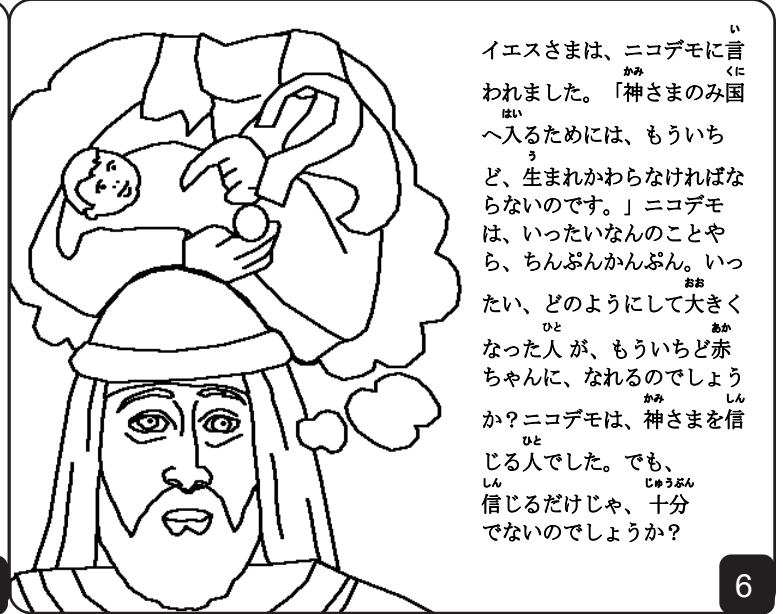 イエスさまは、ニコデモに言
われました。「神さまのみ国
へ入るためには、もういち
ど、生まれかわらなければな
らないのです。」ニコデモ
は、いったいなんのことや
ら、ちんぷんかんぷん。いっ
たい、どのようにして大きく
なった人 が、もういちど赤
ちゃんに、なれるのでしょう
か？ニコデモは、神さまを信
じる人でした。でも、
信じるだけじゃ、十分
でないのでしょうか？
6